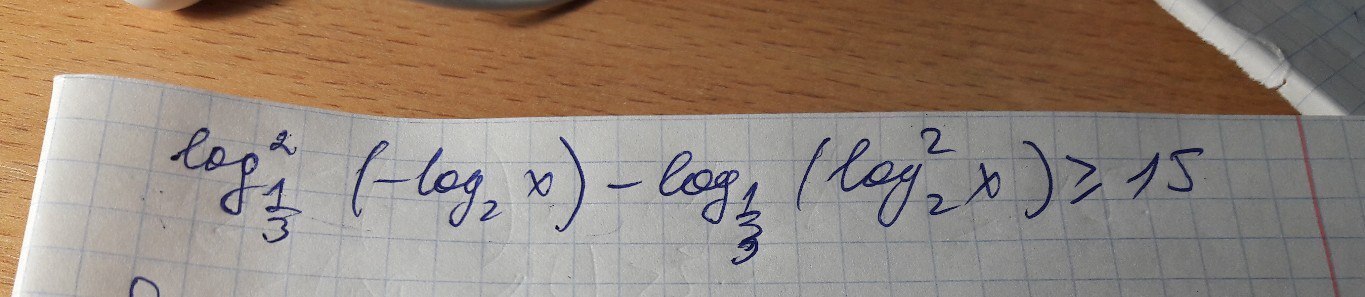 log²_{1/3} (-log₂ x) - log_{1/3} (log₂² x) ≥ 15